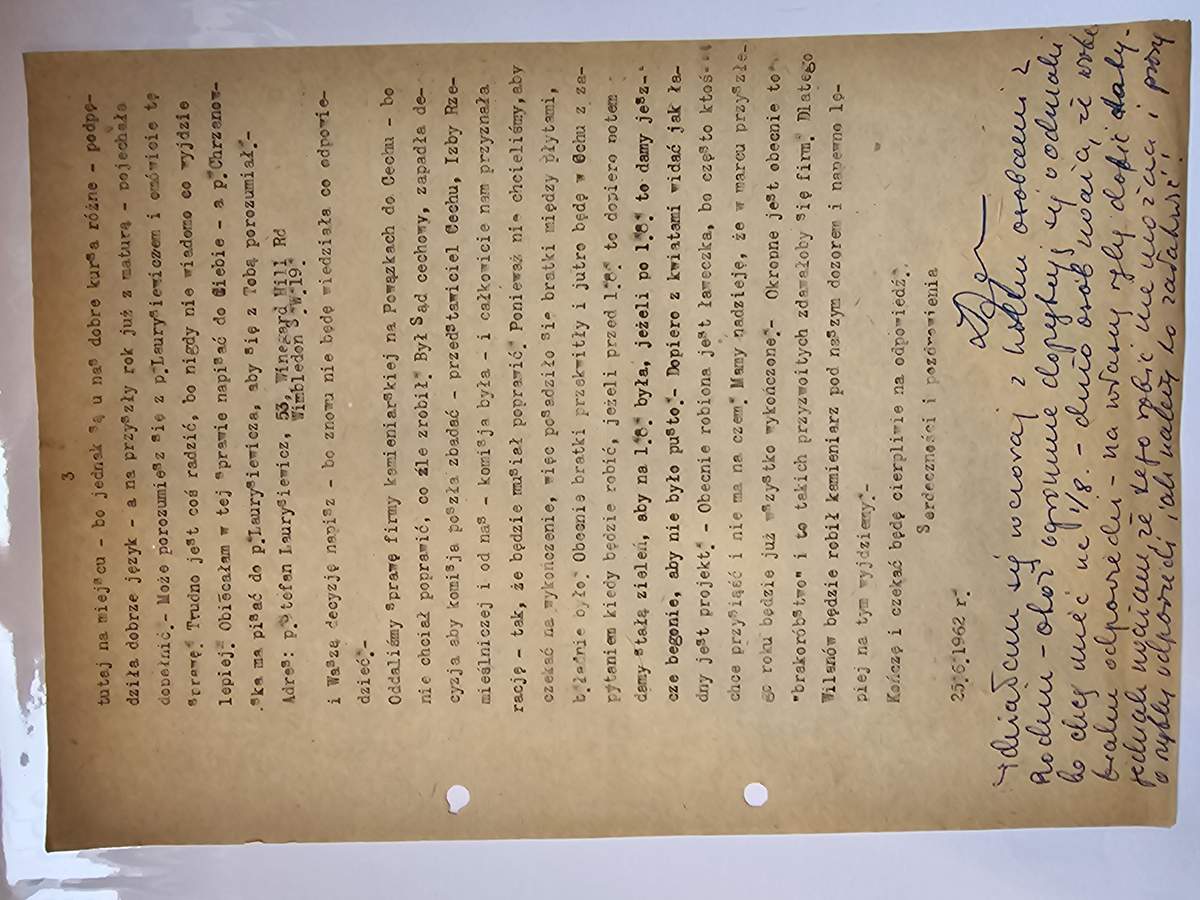 3
tutaj na miejscu - bo jednak są u nas dobre kursa różne - podpę-
dziła dobrze język - a na przyszły rok już z maturą - pojechała
dopełnić.- Może porozumiesz się z p.Laurysiewiczem i omówicie tę
sprawę. Trudno jest coś radzić, bo nigdy nie wiadomo co wyjdzie
lepiej. Obiecałam w tej sprawie napisać do Ciebie - a p.Chrzanow-
ska ma pisać do p.Laurysiewicza, aby się z Tobą porozumiał.-
Adres: p.Stefan Laurysiewicz, 53, Winegard Hill Rd
Wimbledon S.W.19.
i Waszą decyzję napisz - bo znowu nie będę wiedziała co odpowie-
dzieć.-
Oddaliśmy sprawę firmy kamieniarskiej na Powązkach do Cechu - bo
nie chciał poprawić, co źle zrobił. Był Sąd cechowy, zapadła de-
cyzja aby komisja poszła zbadać - przedstawiciel Cechu, Izby Rze-
mieślniczej i od nas - komisja była - i całkowicie nam przyznała
rację - tak, że będzie musiał poprawić. Ponieważ nie chcieliśmy,aby
czekać na wykończenie, więc posadziło się bratki między płytami,
b.ładnie było. Obecnie bratki przekwitły i jutro będę w Cchu z za-
pytaniem kiedy będzie robić, jeżeli przed 1.8. to dopiero potem
damy stałą zieleń, aby na 1.8. była, jeżeli po 1.8. to damy jesz-
cze begonie, aby nie było pusto.- Dopiero z kwiatami widać jak ła-
dny jest projekt.- Obecnie robiona jest ławeczka, bo często ktoś
chce przysiąść i nie ma na czem. Mamy nadzieję, że w marcu przyszłe-
go roku będzie już wszystko wykończone.- Okropne jest obecnie to
"brakoróbstwo" i to takich przyzwoitych zdawałoby się firm. Dlatego
Wilanów będzie robił kamieniarz pod naszym dozorem i napewno le-
piej na tym wyjdziemy.-
Kończę i czekać będę cierpliwie na odpowiedź.
Serdeczności i pozdrowienia
25.6.1962 r.
Widziałam się wczoraj z wielu osobami z
Rodzin - około ogromnie dopytują się o odznaki
bo chcą mieć na 1/8. - dużo osób uważa, że wobec
braku odpowiedzi - na własną rękę dobić
jednak uważam że tego robić nie można i proszę
o szybką odpowiedź jak należy to załatwić